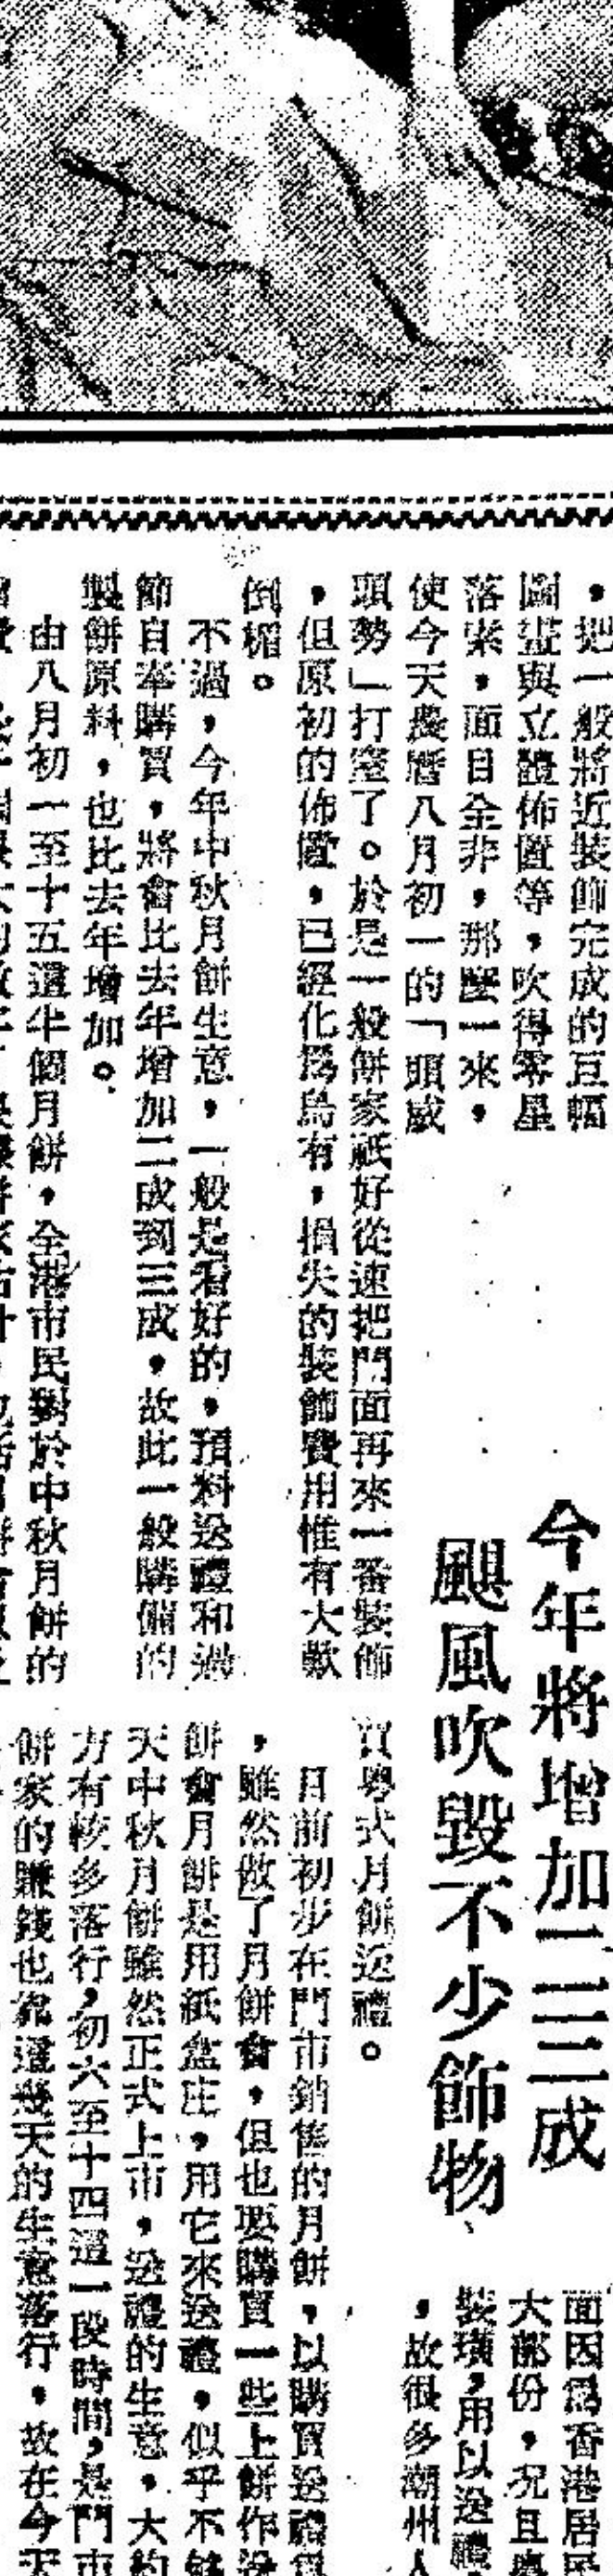 今年將增加二三成
颶風吹毀不少飾物
，把一般將近裝飾完成的巨幅
圖畫與立體佈置等，吹得零星
落索，面目全非，那麼一來，
使今天農曆八月初一的「頭威
頭勢」打窒了。於是一般餅家祇好從速把門面再來一番裝飾
，但原初的佈置，已經化爲烏有，損失的裝飾費用惟有大歎
倒楣。
不過，今年中秋月餅生意，一般是看好的，預料送禮和過
節自奉購買，將會比去年增加二成到三成，故此一般購備的
製餅原料，也比去年增加。
由八月初一至十五這半個月餅，全港市民對於中秋月餅的
面因爲香港居民
大部份，況且
裝璜，用以送禮
，故很多潮州人
買粵式月餅送禮。
目前初步在門市銷售的月餅，以購買送禮
，雖然做了月餅會，但也要購買一些上餅作送
餅會月餅是用紙盒庄，用它來送禮，似乎不够
天中秋月餅雖然正式上市，送禮的生意，大約
方有較多落行，初六至十四這一段時間，是門市
餅家的賺錢也靠這幾天的生意落行，故在今天